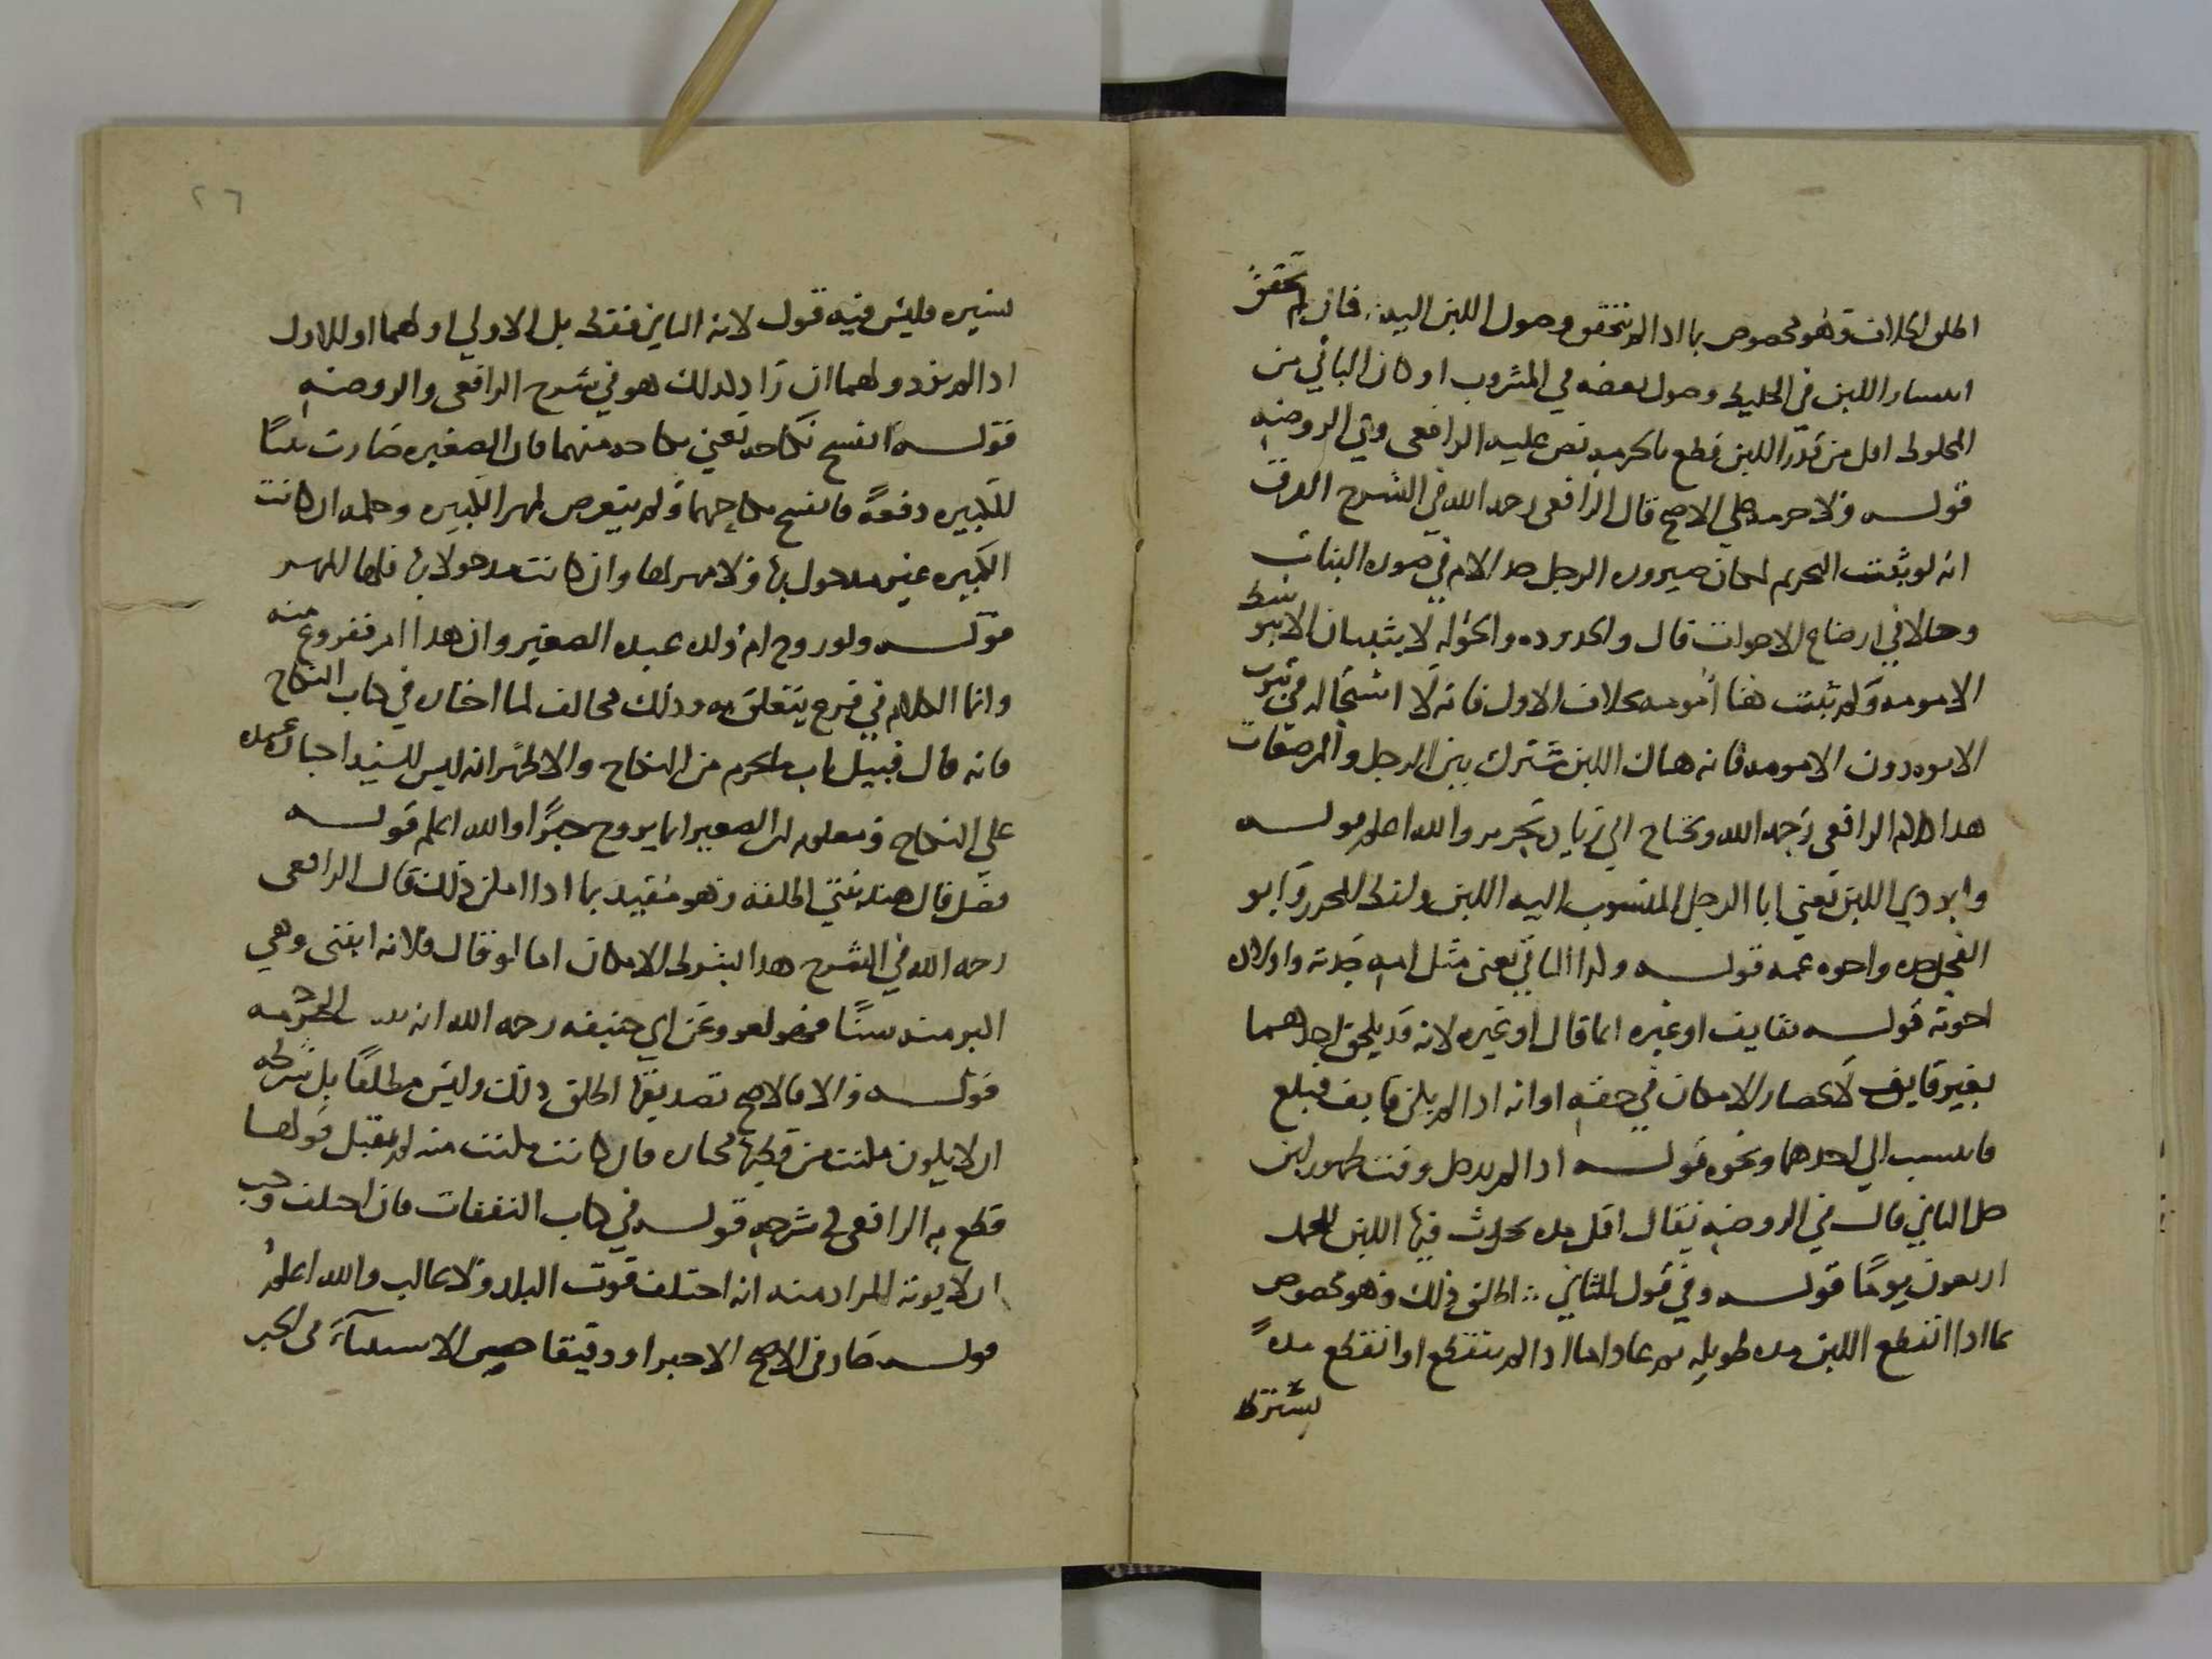 اطلق الخلاف وهو مخصوص بما اذا لم يتحقق وصول اللبن اليه فان تحقق
انتشار اللبن في الخليط وحصول بعضه في المشروب او كان الباقي من
المخلوط اقل من قدر اللبن قطع بالتحريم نص عليه الرافعي وفي الروضة
قوله ولا حرمة على الاصح قال الرافعي رحمه الله في الشرح الفرق
انه لو ثبتت التحريم لكان صيرورة الرجل جد الام في صورة البنات
وخالا في ارضاع الاخوات قال والجدودة والخؤلة لا يثبتان الا بتوسط
الامومة ولم يثبت هنا امومة بخلاف الاول فانه لا استحالة في ثبوت
الابوة دون الامومة فانه هناك اللبن مشترك بين الرجل والمرضعات
هذا كلام الرافعي رحمه الله ويحتاج الى زيادة تحرير والله اعلم قوله
وابو ذي اللبن يعني ابا الرجل المنسوب اليه اللبن ولفظ المحرر وابو
الفحل جده واخوه عمه قوله ولذا الباقي يعني مثل امه جدته واولاده
اخوته قوله بقايف او غيره انما قال او غيره لانه قد يلحق احدهما
بغير قايف لانحصار الامكان في حقه او انه اذا لم يكن قايف فبلغ
فانتسب الى احدهما ونحوه قوله اذا لم يدخل وقت ظهور لبن
حمل الثاني قال في الروضة يقال اقل مدة يحدث فيها اللبن للحمل
اربعون يوما قوله وفي قول للثاني اطلق ذلك وهو مخصوص
بما اذا انقطع اللبن مدة طويلة ثم عاد اما اذا لم ينقطع او انقطع مدة
٢٦
يسيره فليس فيه قول لانه الثاني فقط بل الاولي او لهما او للاول
اذا لم يزد ولهما ان زاد كذلك هو في شرح الرافعي والروضة
قوله انفسخ نكاحه يعني نكاحه منهما فان الصغيره صارت بنتا
للكبيره دفعة فانفسخ نكاحهما ولم يتعرض لمهر الكبيره وحكمه ان كانت
الكبيره غير مدخول بها فلا مهر لها وان كانت مدخولا بها فلها المهر
قوله ولو زوج ام ولده عبده الصغير وان هذا امر مفروغ منه
وانما الكلام في فرع يتعلق به وذلك مخالف لما اختاره في كتاب النكاح
فانه قال قبيل باب ما يحرم من النكاح والاظهر انه ليس للسيد اجبار عبده
على النكاح ومعلوم ان الصغير انما يزوج جبرا والله اعلم قوله
فصل قال هند بنتي اطلقه وهو مقيد بما اذا امكن ذلك قال الرافعي
رحمه الله في الشرح هذا بشرط الامكان اما لو قال فلانة ابنتي وهي
اكبر منه سنا فهو لغو وعن ابي حنيفه رحمه الله انه الحرمه
قوله والا فالاصح تصديقها اطلق ذلك وليس مطلقا بل شرطه
ان لا يكون مكنت من وطيها مختاره فان كانت مكنت منه لم يقبل قولها
قطع به الرافعي في شرحه قوله في كتاب النفقات فان اختلف وجب
ان لا يؤنه المراد منه انه اختلف قوت البلد ولا غالب والله اعلم
قوله صار في الاصح الا خبزا او دقيقا